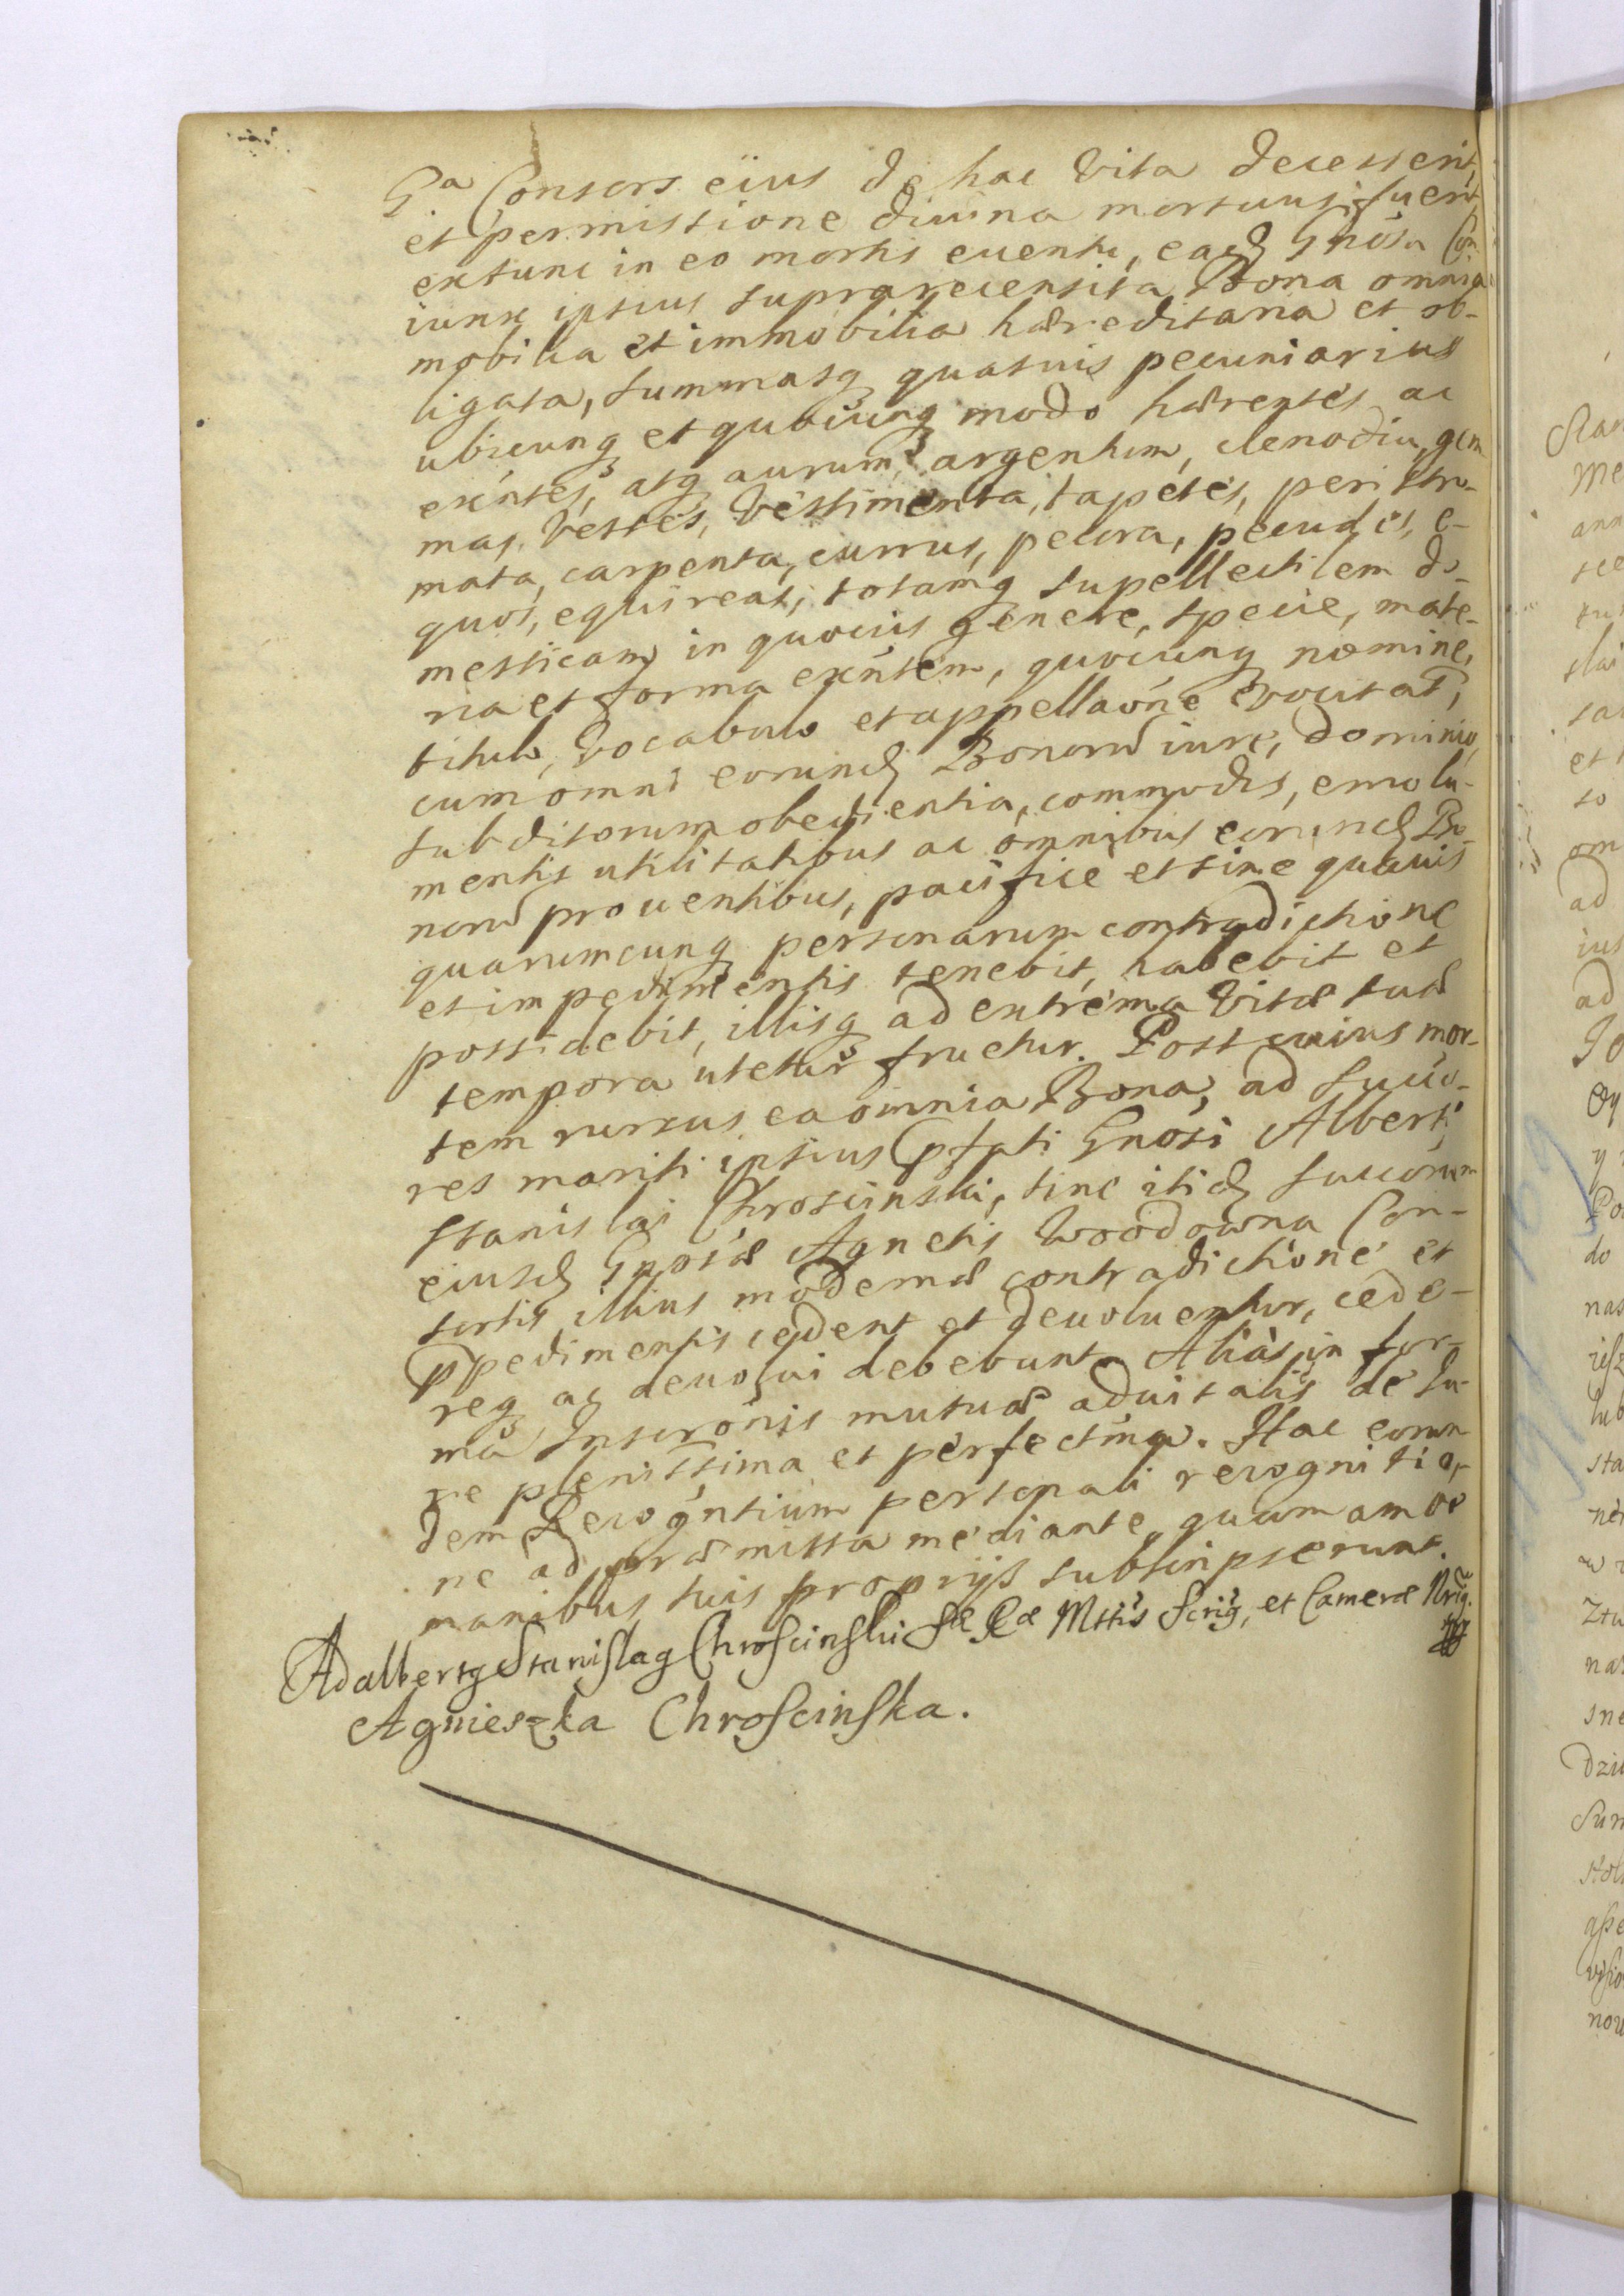 Gᵃ Consors eius de hac Vita decesserit,
et permissione diuina mortuus fuerit,
extunc in eo mortis euentu, eadꝫ Gnosa Con
iunx ipsius suprarecensita Bona omnia
mobilia et immobilia hæreditaria et ob-
ligata, summasqꝫ quasuis pecuniarias
ubicunqꝫ et quouisqꝫ modo hærentes ac
exńtes, atqꝫ aurum, argentum, clenodia, gem
mas, Vestes, Vestimenta, tapetes, peristro-
mata, carpenta, currus, pecora, pecudes, e-
quos, equireas, totamqꝫ supellectilem do-
mesticam in quouis genere, specie, mate-
ria et forma exńtem, quocunqꝫ nomine,
titulo, Vocabulo et appellaõne euocitat,
cum omni eorundꝫ Bonorũ iure, dominio,
subditorum obedientia, commodis, emolu-
mentis utilitatibus ac omnibus eorundꝫ Bo-
norũ prouentibus, pacifice et sine quauis
quarumcunqꝫ personarum contradictione
et impedimentis tenebit, habebit et
possidebit, illisqꝫ ad extrema Vitæ suæ
tempora utetur fruetur. Post cuius mor-
tem rursus ea omnia Bona, ad succo-
res mariti ipsius pfati Gnosi Alberti
Stanislai Chroscinski, sine itidꝫ succorum
eiusdꝫ Gnosæ Agnetis Woodowna Con-
sortis illius modernæ contradictione et
ppedimentis cedent et deuoluentur, cede-
reqꝫ ac deuolui debebunt. Alias in for-
ma Inscrõnis mutuæ aduitalis de Iu-
re plenissima et perfectma. Hac eorun-
dem Recogńtium personali recognitio-
ne ad præmissa mediante, quam ambo
manibus suis proprijs subscripserunt.
Adalbertꝫ Stanislaꝫ Chroscinski Sᵃᵉ Rᵃᵉ Mttis Scrig, et Cameræ Nrig.
Agnieszka Chroscinska.